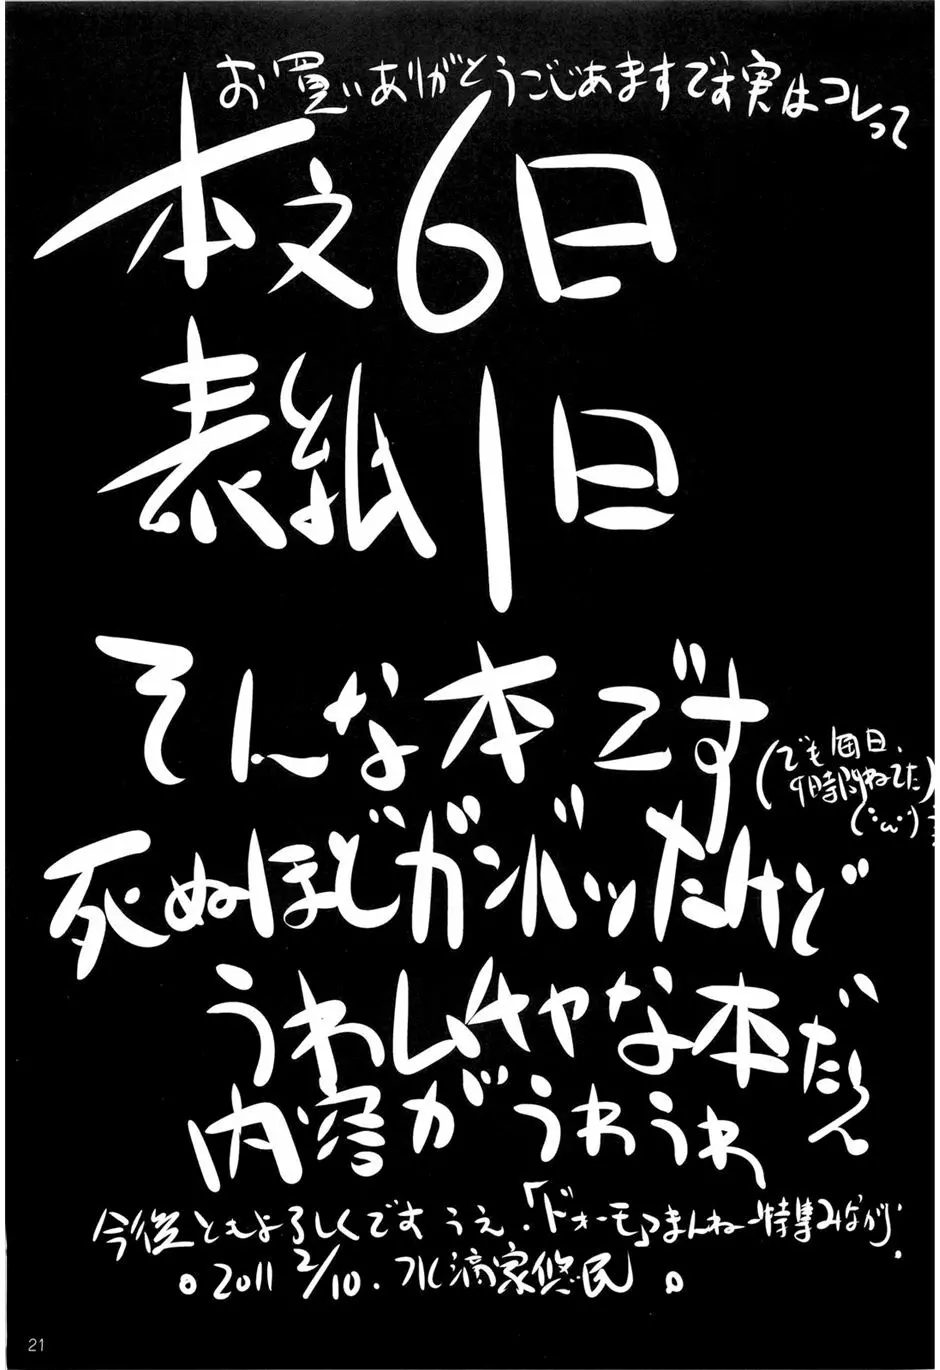 お買いありがとうごじあますです実はコレって
本文6日
表紙1日
そんな本です
(でも毎日、
9時間ねてた)
(・ω・)
死ぬほどガンバッたけど
うわムチャな本だ〜ん
内容がうわうわ
今後ともよろしくです うえ、「ドォーモ」まんねー特集みながら.
。2011 2/10. 水滴家悠民 。
21